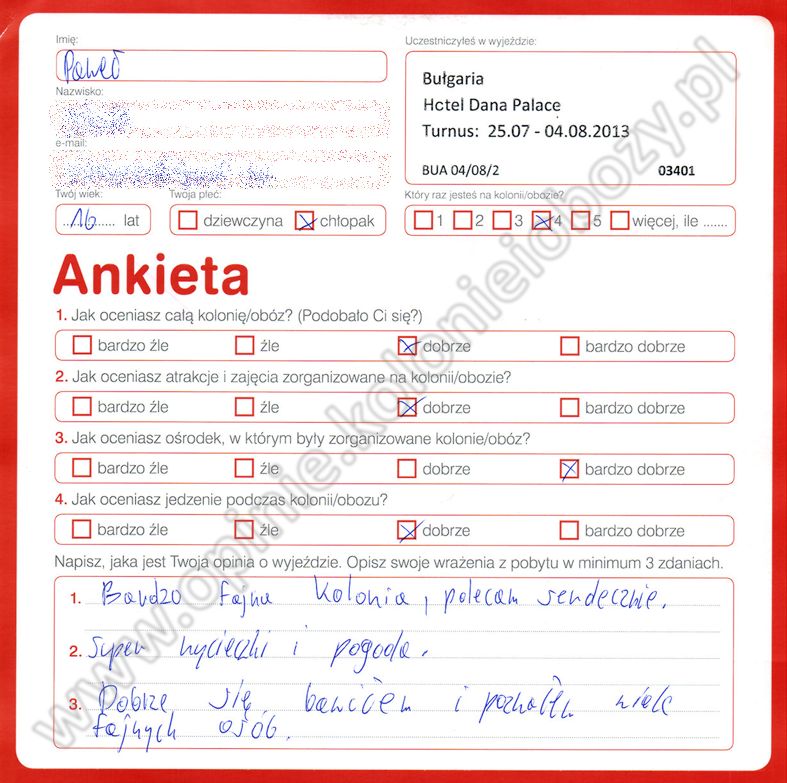 Imię:
Paweł
Nazwisko:
e-mail:
Twój wiek:
16 lat
Twoja płeć:
dziewczyna chłopak
Uczestniczyłeś w wyjeździe:
Bułgaria
Hotel Dana Palace
Turnus: 25.07 - 04.08.2013
BUA 04/08/2 03401
Który raz jesteś na kolonii/obozie?
1 2 3 4 5 więcej, ile .......
Ankieta
1. Jak oceniasz całą kolonię/obóz? (Podobało Ci się?)
bardzo źle źle dobrze bardzo dobrze
2. Jak oceniasz atrakcje i zajęcia zorganizowane na kolonii/obozie?
bardzo źle źle dobrze bardzo dobrze
3. Jak oceniasz ośrodek, w którym były zorganizowane kolonie/obóz?
bardzo źle źle dobrze bardzo dobrze
4. Jak oceniasz jedzenie podczas kolonii/obozu?
bardzo źle źle dobrze bardzo dobrze
Napisz, jaka jest Twoja opinia o wyjeździe. Opisz swoje wrażenia z pobytu w minimum 3 zdaniach.
1. Bardzo fajna kolonia, polecam serdecznie.
2. Super wycieczki i pogoda.
3. Dobrze się bawiłem i poznałem wiele
fajnych osób.
www.opinie.kolonieiobozy.pl